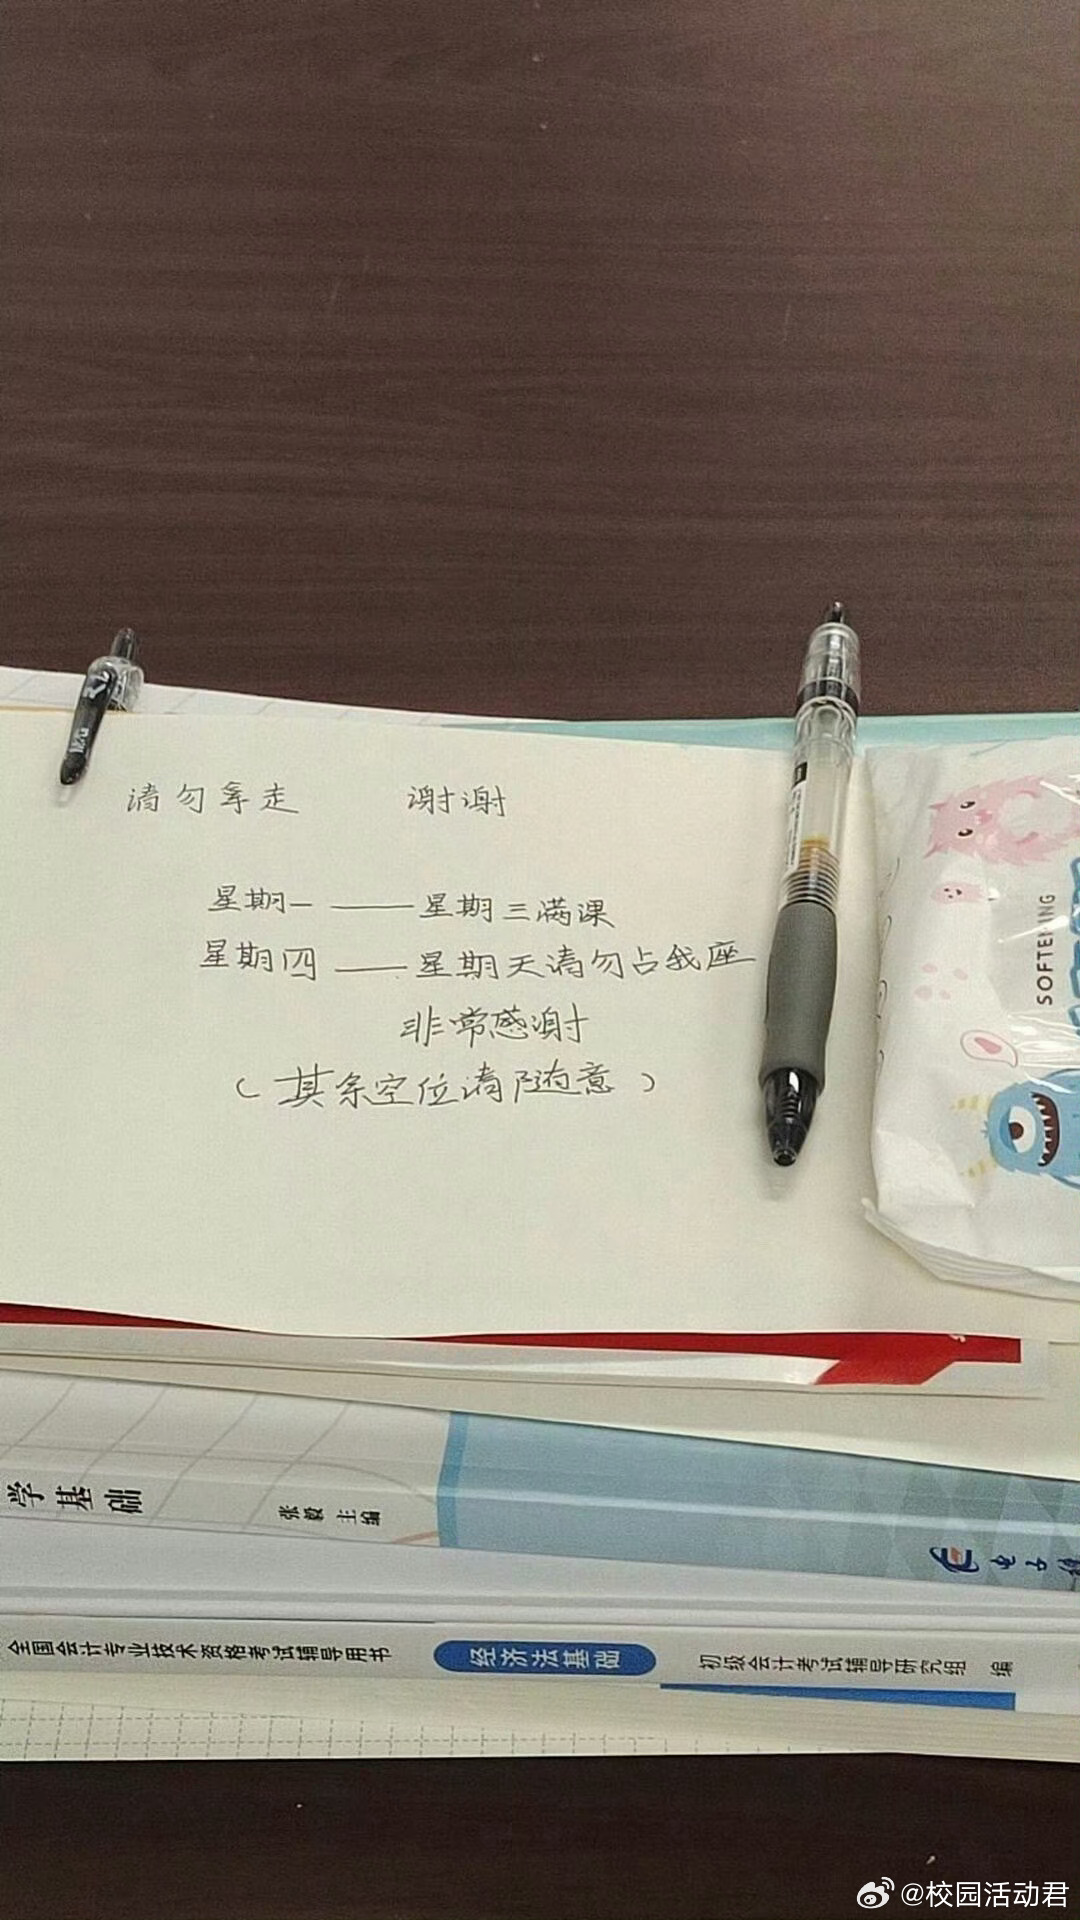 请勿拿走 谢谢
星期一 —— 星期三满课
星期四 —— 星期天请勿占我座
非常感谢
（其余空位请随意）
SOFTENING
学基础 张毅 主编
电子
全国会计专业技术资格考试辅导用书 经济法基础 初级会计考试辅导研究组 编
@校园活动君